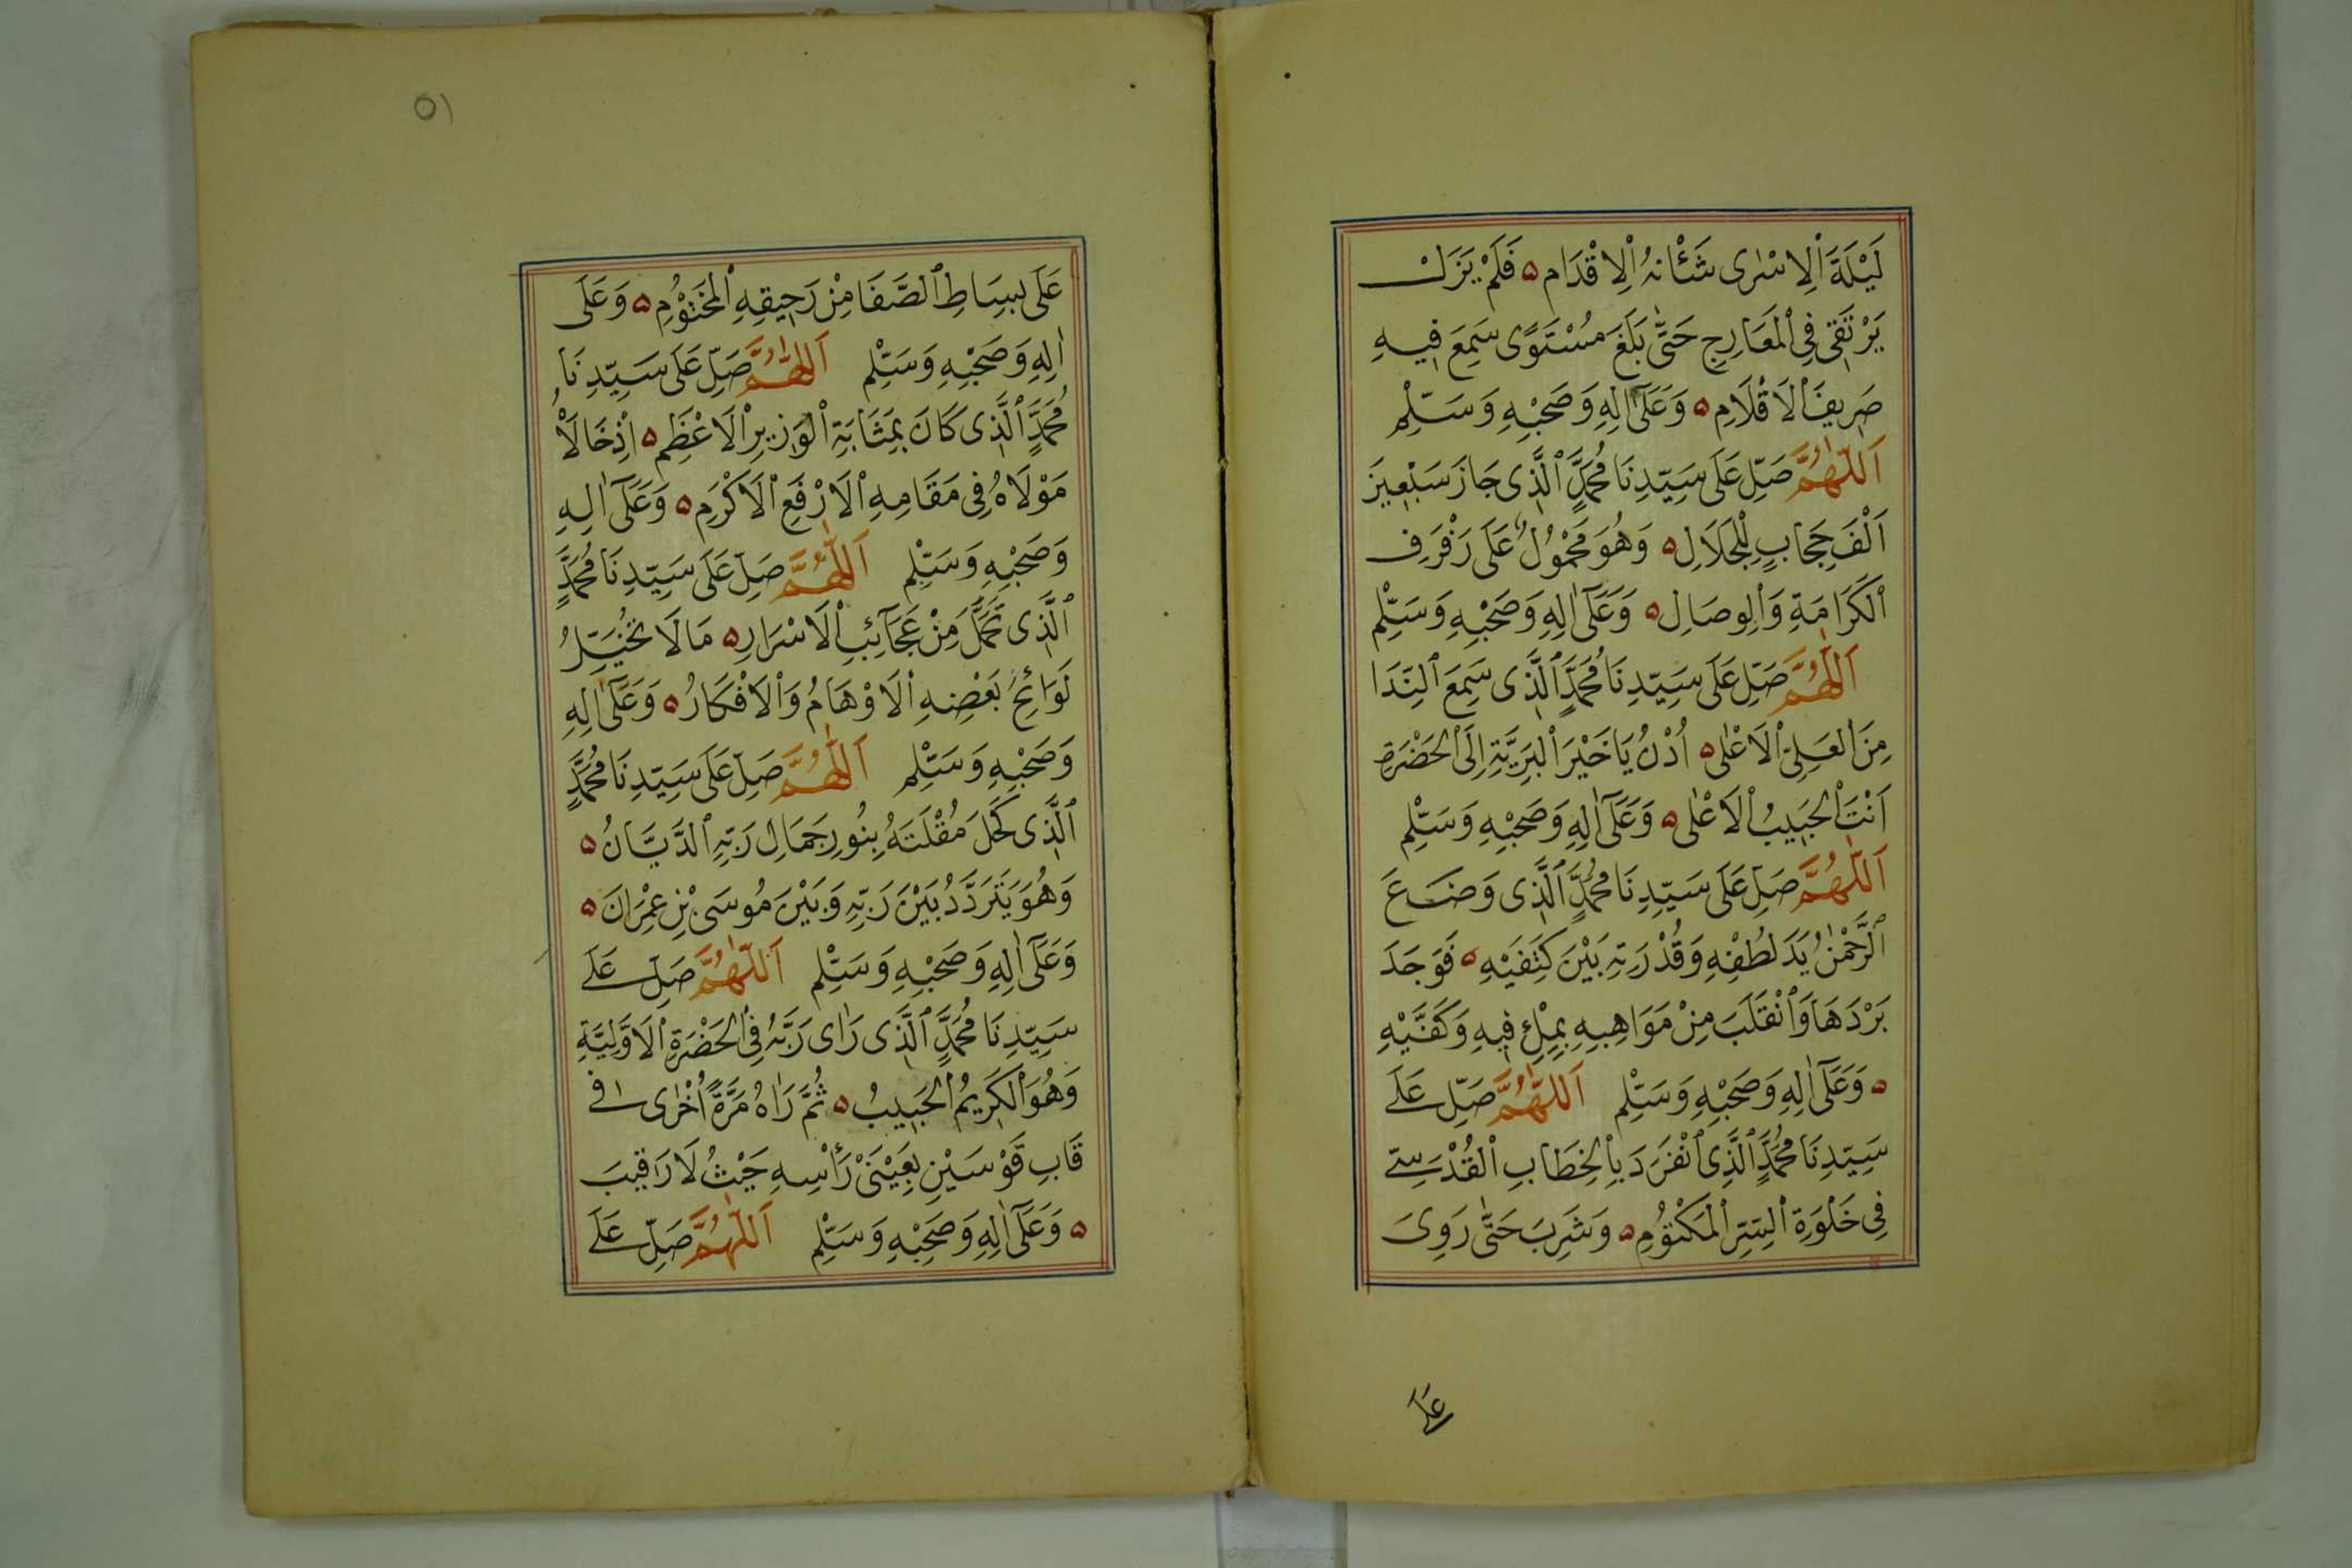 لَيْلَةَ ٱلْاِسْرٰى شَئْاَنهُ ٱلْاِقْدَام ۵ فَلَمْ يَزَلْ
يَرْتَقِى فِى ٱلْمَعَارِجِ حَتّٰى بَلَغَ مُسْتَوًى سَمِعَ فِيهِ
صَرِيفَ ٱلْاَقْلَامِ ۵ وَعَلٰٓى اٰلِهِ وَصَحْبِهِ وَسَلِّمْ
اَللّٰهُمَّ صَلِّ عَلٰى سَيِّدِنَا مُحَمَّدٍ ٱلَّذِى جَازَ سَبْعِينَ
اَلْفَ حِجَابٍ لِلْجَلَالِ ۵ وَهُوَ مَحْمُولٌ عَلٰى رَفْرَفِ
ٱلْكَرَامَةِ وَٱلْوِصَالِ ۵ وَعَلٰٓى اٰلِهِ وَصَحْبِهِ وَسَلِّمْ
اَللّٰهُمَّ صَلِّ عَلٰى سَيِّدِنَا مُحَمَّدٍ ٱلَّذِى سَمِعَ ٱلنِّدَا
مِنَ ٱلْعَلِىِّ ٱلْاَعْلٰى ۵ اُدْنُ يَا خَيْرَ ٱلْبَرِيَّةِ اِلَى ٱلْحَضْرَةِ
اَنْتَ ٱلْحَبِيبُ ٱلْاَعْلٰى ۵ وَعَلٰٓى اٰلِهِ وَصَحْبِهِ وَسَلِّمْ
اَللّٰهُمَّ صَلِّ عَلٰى سَيِّدِنَا مُحَمَّدٍ ٱلَّذِى وَضَعَ
ٱلرَّحْمٰنُ يَدَ لُطْفِهِ وَقُدْرَتِهِ بَيْنَ كَتِفَيْهِ ۵ فَوَجَدَ
بَرْدَهَا وَٱنْقَلَبَ مِنْ مَوَاهِبِهِ بِمِلْءِ فِيهِ وَكَفَّيْهِ
۵ وَعَلٰٓى اٰلِهِ وَصَحْبِهِ وَسَلِّمْ اَللّٰهُمَّ صَلِّ عَلٰى
سَيِّدِنَا مُحَمَّدٍ ٱلَّذِى ٱنْفَرَدَ بِٱلْخِطَابِ ٱلْقُدْسِىّ
فِى خَلْوَةِ ٱلسِّتِرِ ٱلْمَكْتُومِ ۵ وَشَرِبَ حَتّٰى رَوِىَ
عَلٰى
٥١
عَلٰى بِسَاطِ ٱلصَّفَا مِنْ رَحِيقِهِ ٱلْمَخْتُومِ ۵ وَعَلٰى
اٰلِهِ وَصَحْبِهِ وَسَلِّمْ اَللّٰهُمَّ صَلِّ عَلٰى سَيِّدِنَا
مُحَمَّدٍ ٱلَّذِى كَانَ بِمَثَابَةِ ٱلْوَزِيرِ ٱلْاَعْظَمِ ۵ اِذْ خَالَاْ
مَوْلَاهُ فِى مَقَامِهِ ٱلْاَرْفَعِ ٱلْاَكْرَمِ ۵ وَعَلٰٓى اٰلِهِ
وَصَحْبِهِ وَسَلِّمْ اَللّٰهُمَّ صَلِّ عَلٰى سَيِّدِنَا مُحَمَّدٍ
ٱلَّذِى تَحَمَّلَ مِنْ عَجَآئِبِ ٱلْاَسْرَارِ ۵ مَالَا تُخَيِّلُ
لَوَائِحَ بَعْضِهِ ٱلْاَوْهَامُ وَٱلْاَفْكَارُ ۵ وَعَلٰٓى اٰلِهِ
وَصَحْبِهِ وَسَلِّمْ اَللّٰهُمَّ صَلِّ عَلٰى سَيِّدِنَا مُحَمَّدٍ
ٱلَّذِى كَحَّلَ مُقْلَتَهُ بِنُورِ جَمَالِ رَبِّهِ ٱلدَّيَّانُ ۵
وَهُوَ يَتَرَدَّدُ بَيْنَ رَبِّهِ وَبَيْنَ مُوسَى بْنِ عِمْرَانَ ۵
وَعَلٰٓى اٰلِهِ وَصَحْبِهِ وَسَلِّمْ اَللّٰهُمَّ صَلِّ عَلٰى
سَيِّدِنَا مُحَمَّدٍ ٱلَّذِى رَاٰى رَبَّهُ فِى ٱلْحَضْرَةِ ٱلْاَوَّلِيَّةِ
وَهُوَ ٱلْكَرِيمُ ٱلْحَبِيبُ ۵ ثُمَّ رَاٰهُ مَرَّةً اُخْرٰى فِى
قَابِ قَوْسَيْنِ بِعَيْنَىْ رَأْسِهِ حَيْثُ لَا رَقِيبَ
۵ وَعَلٰٓى اٰلِهِ وَصَحْبِهِ وَسَلِّمْ اَللّٰهُمَّ صَلِّ عَلٰى